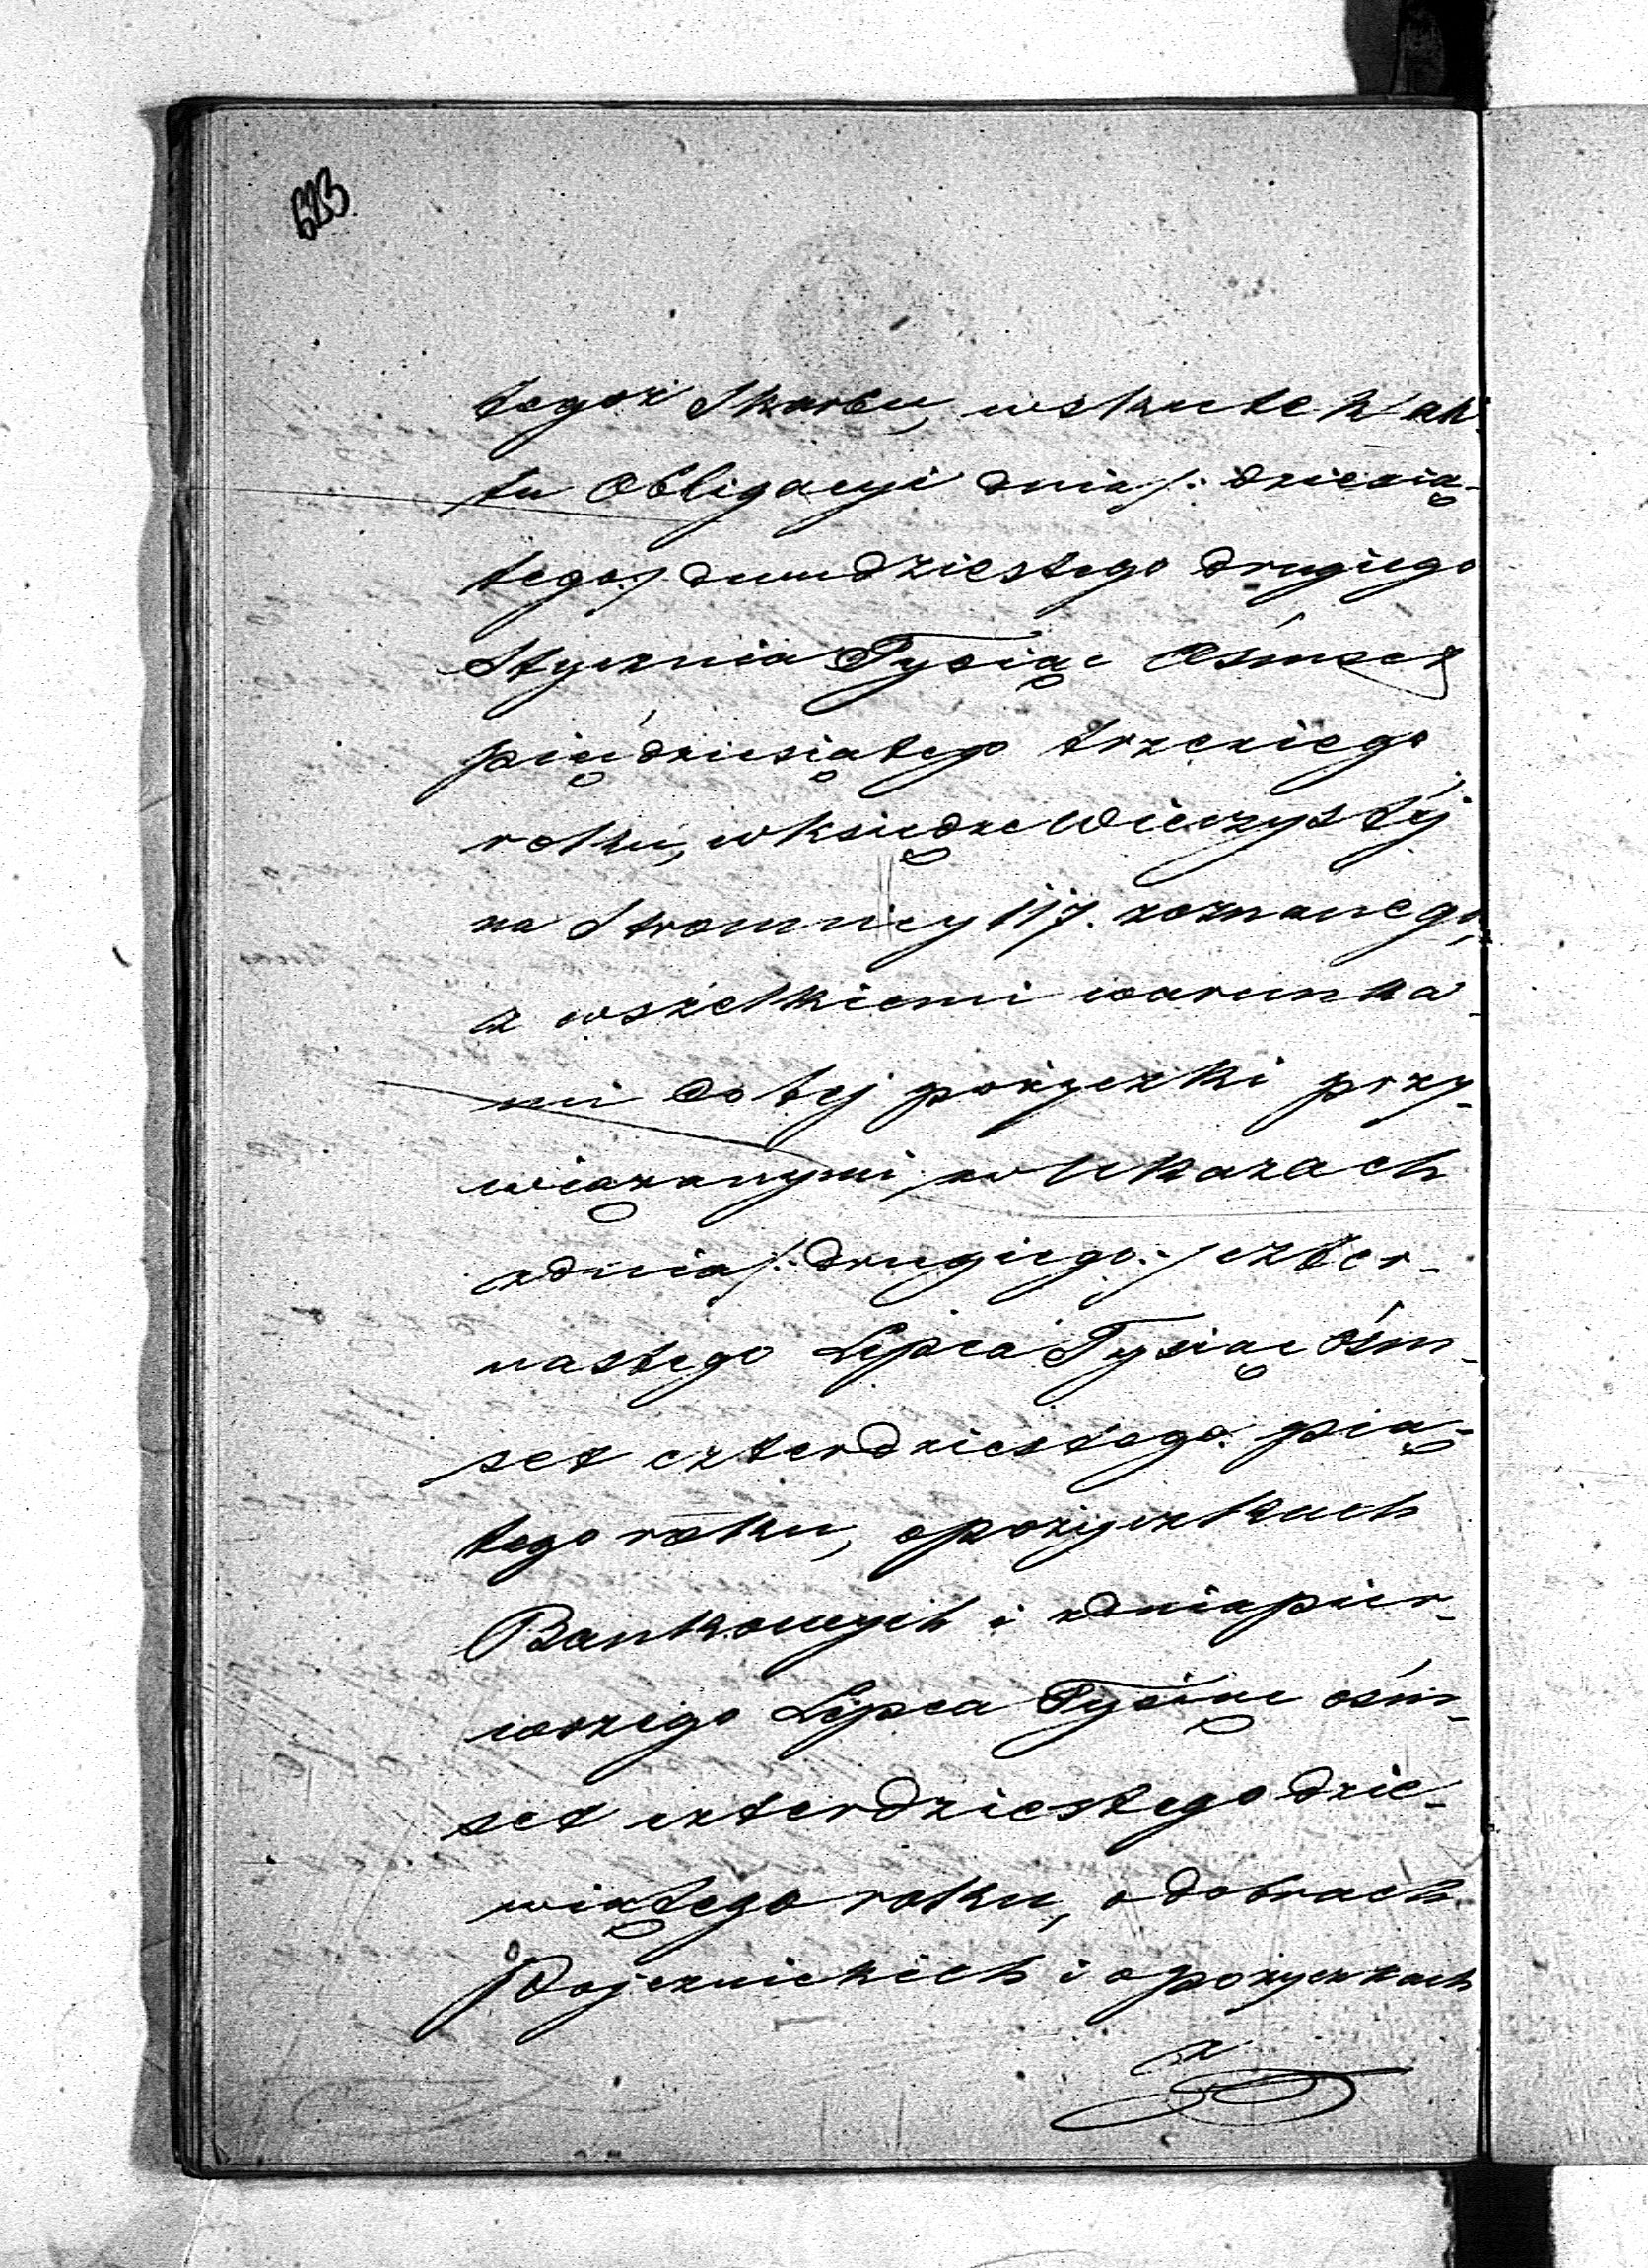 623
tegoż Skarbu, wskutek ak-
tu Obligacyi dnia /: dziesią-
tego :/ dwudziestego drugiego
Stycznia Tysiąc Ośmset
pięćdziesiątego trzeciego
roku, w księdze Wieczystéj
na Stronnicy 117. zeznanego,
z wszelkiemi warunka-
mi do téj pożyczki przy-
wiązanymi, w Ukazach
z dnia /: drugiego :/ czter-
nastego Lipca Tysiąc ośm-
set czterdziestego pią-
tego roku, o pożyczkach
Bankowych i z dnia pier-
wszego Lipca Tysiąc ośm-
set czterdziestego dzie-
wiątego roku, o dobrach
Pojeznickich i o pożyczkach